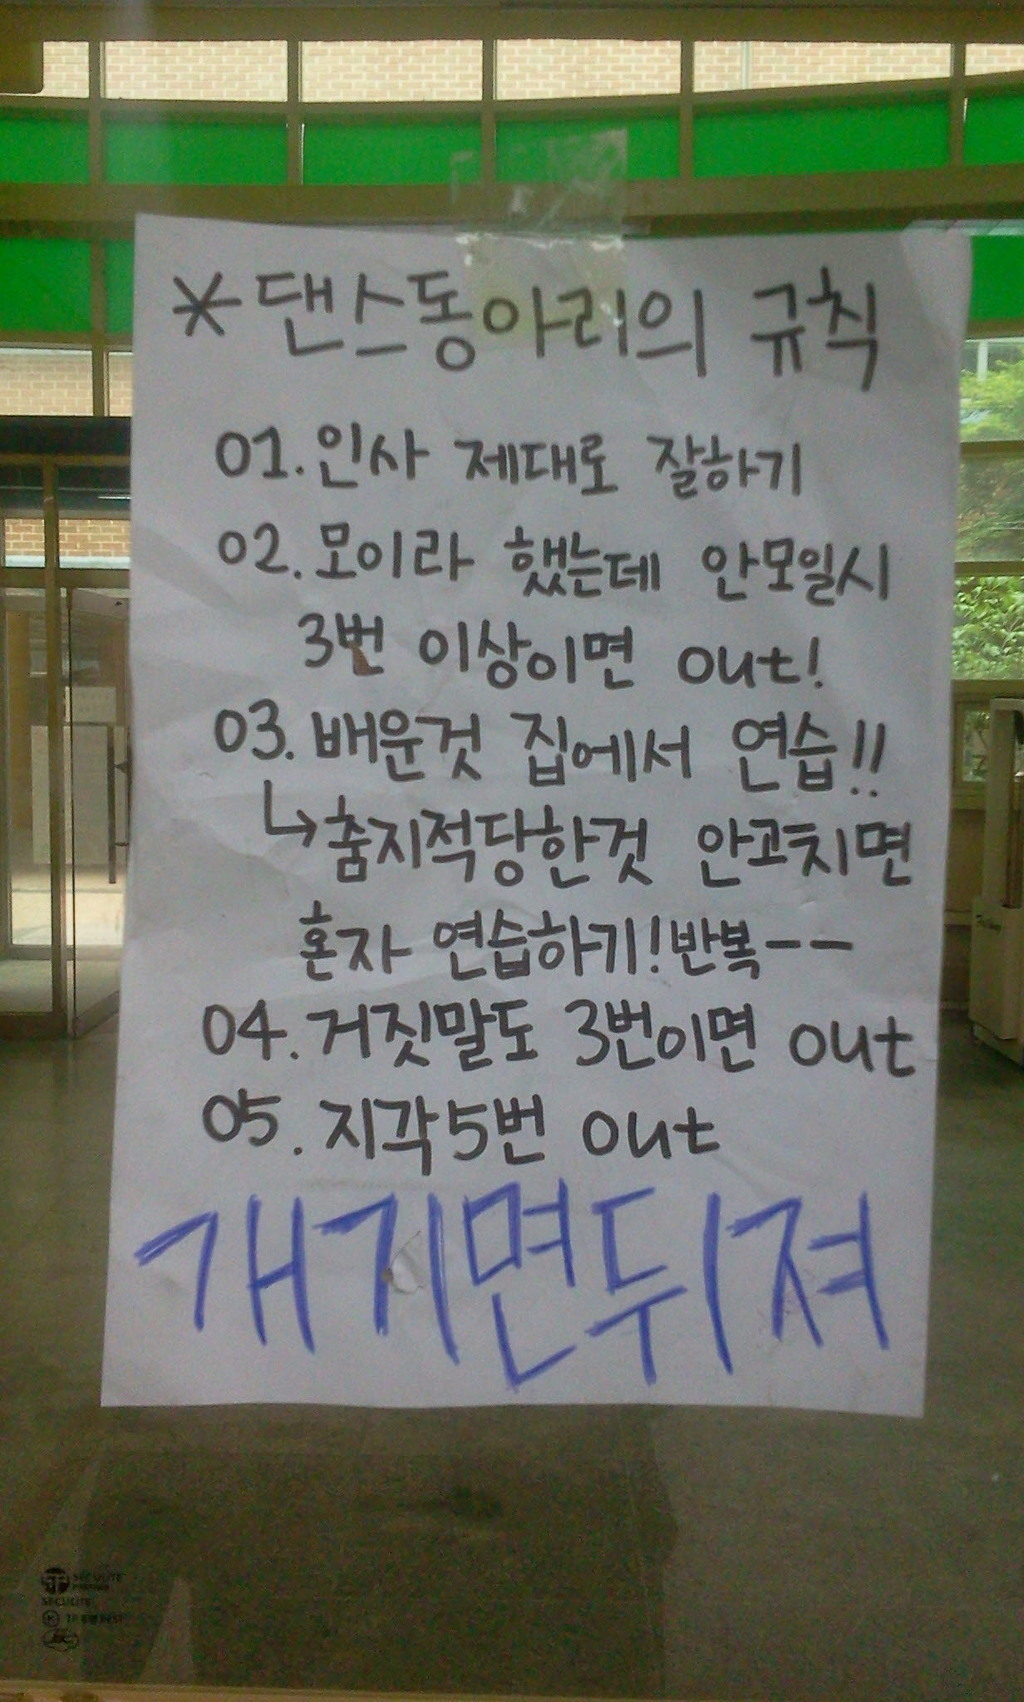 *댄스동아리의 규칙
01.인사 제대로 잘하기
02.모이라 했는데 안모일시
3번 이상이면 out!
03.배운것 집에서 연습!!
↳춤지적당한것 안고치면
혼자 연습하기!반복--
04.거짓말도 3번이면 out
05.지각5번 out
개지면뒤져
SECULITE
SECULITE